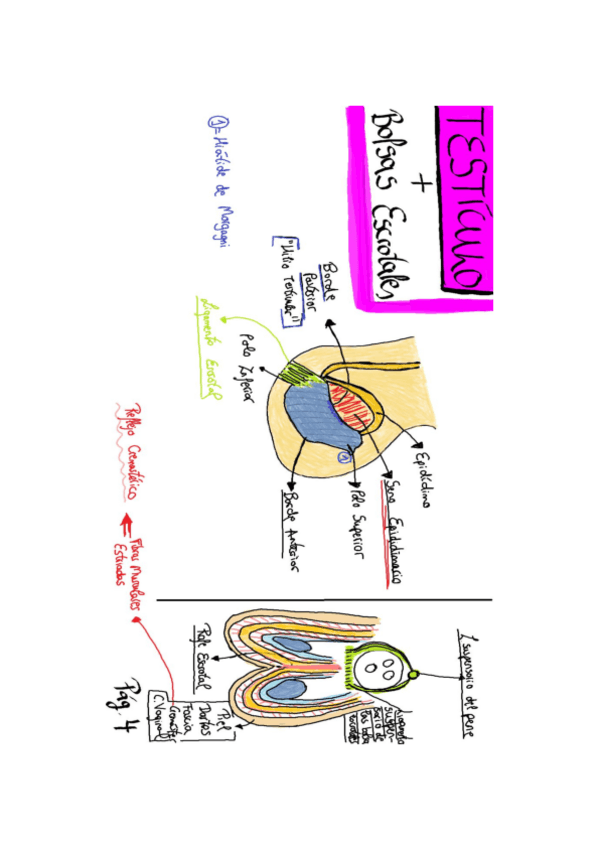 TESTÍCULO
+
Bolsas Escrotales
①= Hidátide de Morgagni
Borde
Posterior
"Hilio Testicular"
Ligamento Escrotal
Polo Inferior
Epidídimo
Seno Epididimario
Polo Superior
①
Borde Anterior
Reflejo Cremastérico
Fibras Musculares
Estriadas
L suspensorio del pene
Ligamento
suspen-
sorio de
las bolsas
Rafe Escrotal
Piel
Dartos
Fascia
Cremáster
C. Vaginal
Pág. 4